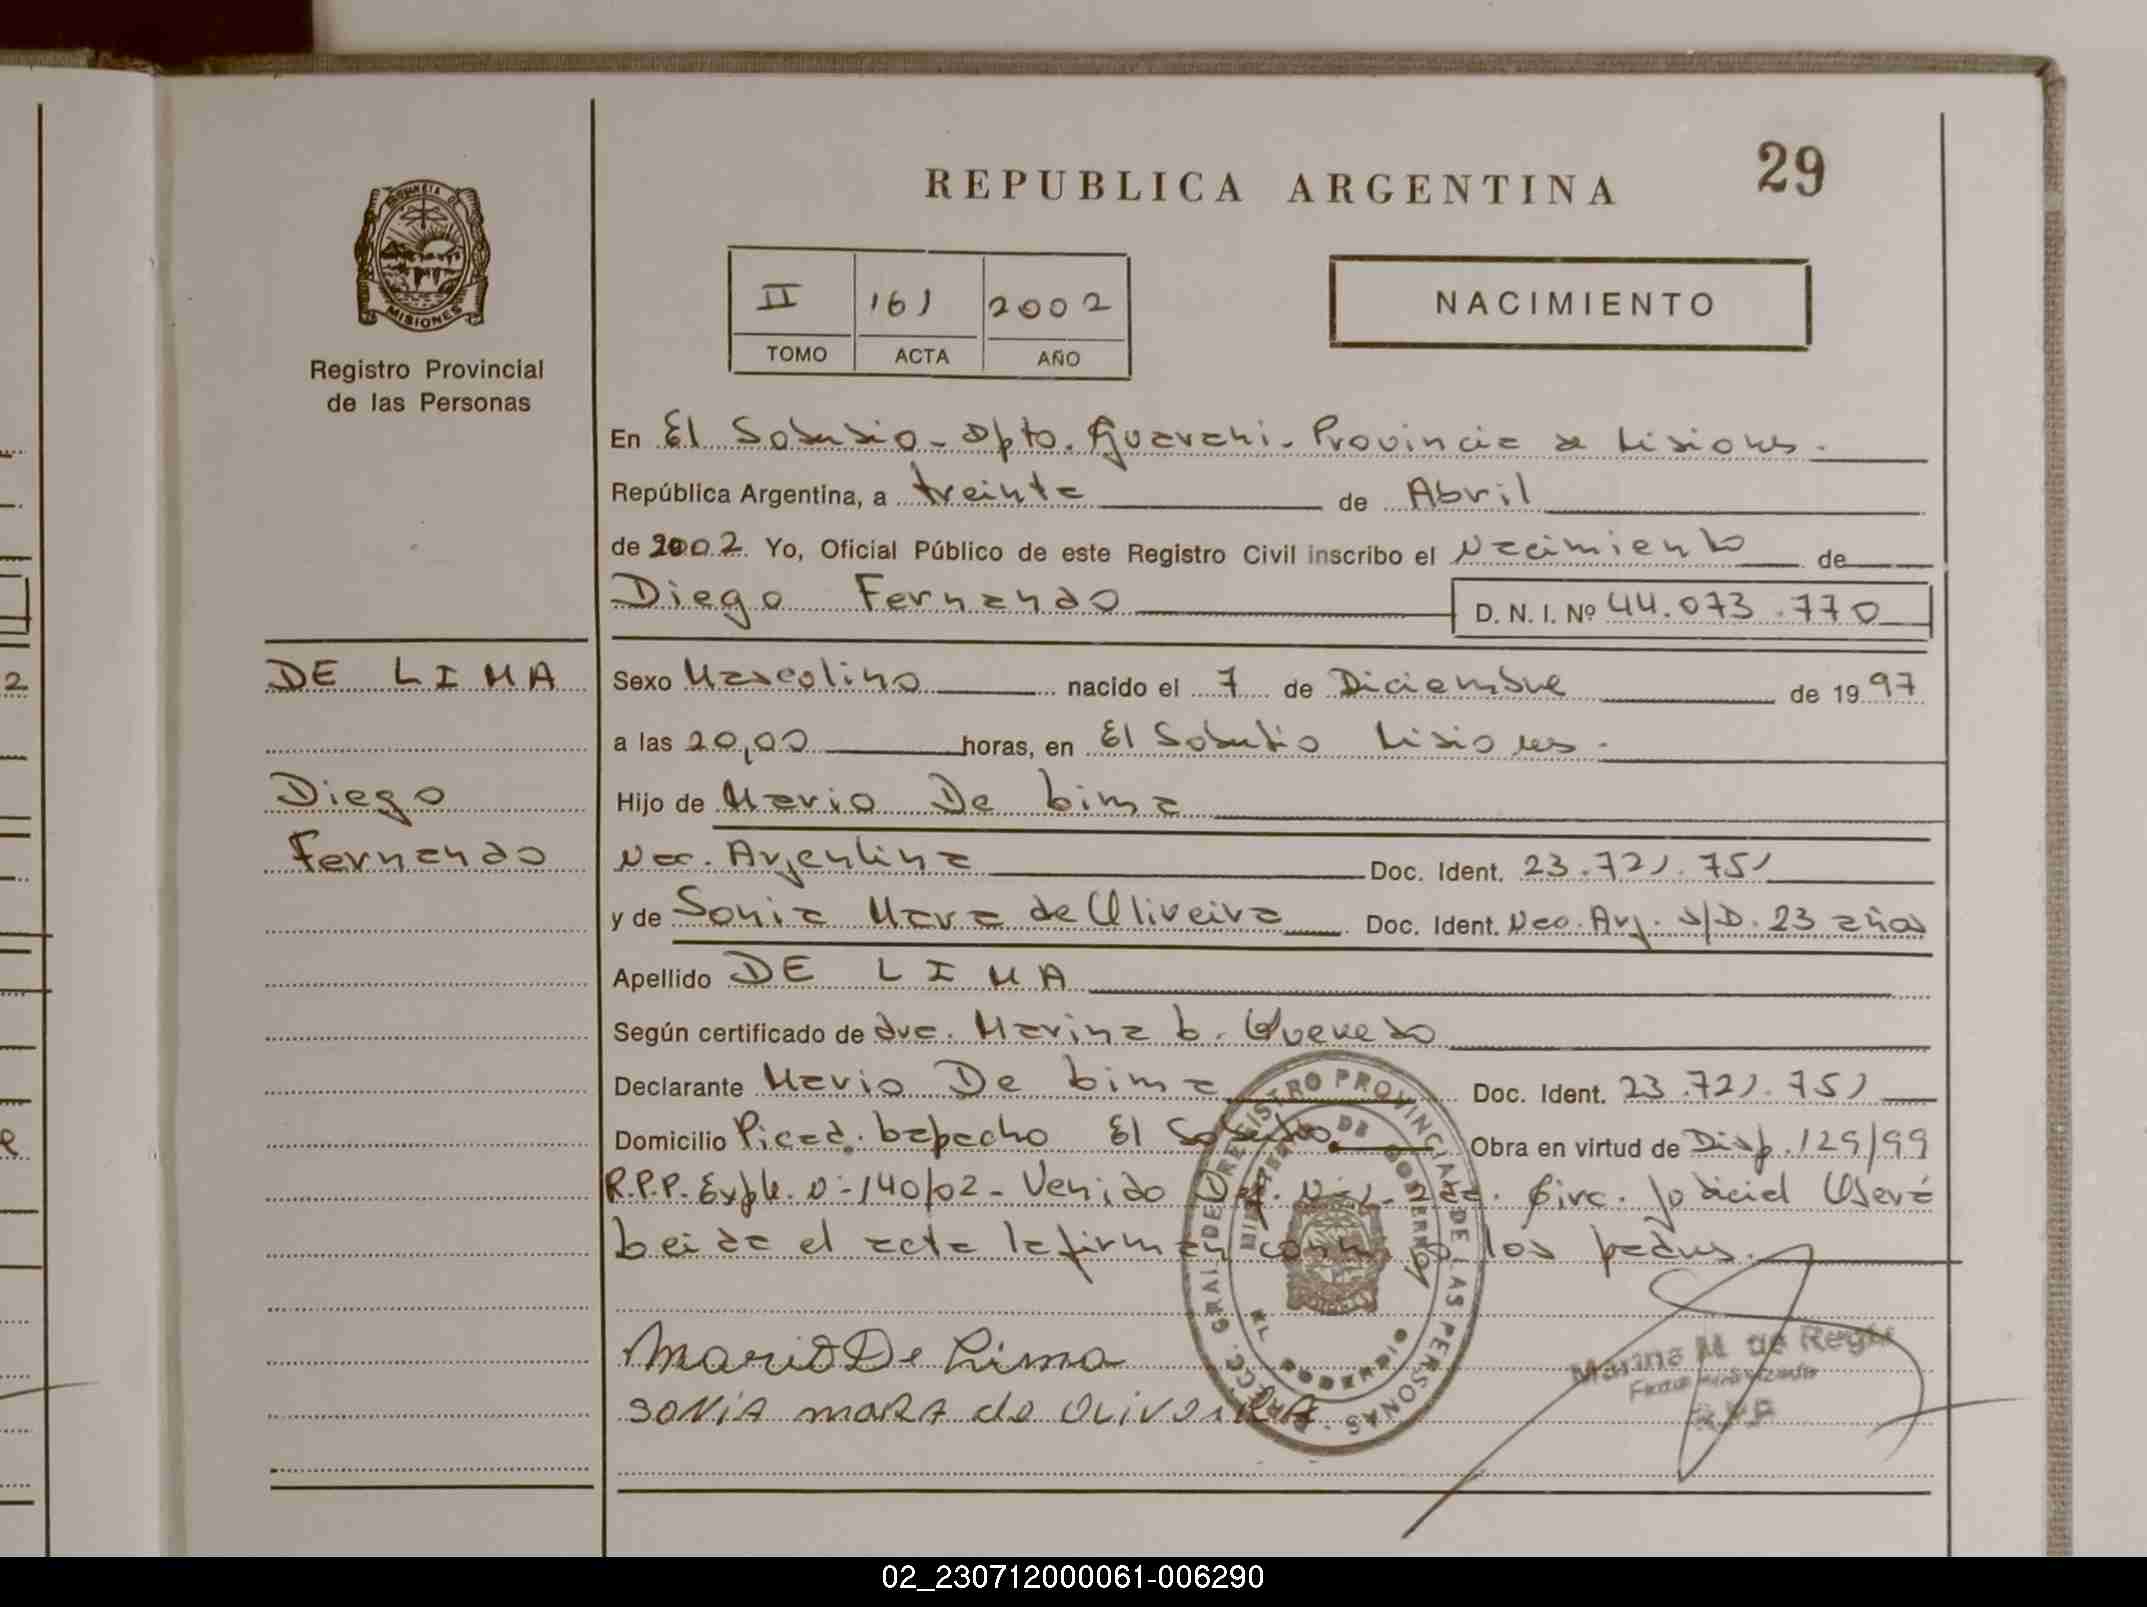 REPUBLICA ARGENTINA
29
PROVINCIA DE
MISIONES
Registro Provincial
de las Personas
II 161 2002
TOMO ACTA AÑO
NACIMIENTO
En El Soberbio - Dpto. Guarani - Provincia de Misiones.-
República Argentina, a treinta de Abril
de 2002. Yo, Oficial Público de este Registro Civil inscribo el Nacimiento de
Diego Fernando D. N. I. Nº 44.073.770
DE LIMA
Sexo Masculino nacido el 7 de Diciembre de 1997
a las 20,00 horas, en El Soberbio Misiones.-
Diego
Hijo de Mario De Lima
Fernando
Nac. Argentina Doc. Ident. 23.721.751
y de Sonia Mara de Oliveira Doc. Ident. Nac. Arg. S/D. 23 años
Apellido DE LIMA
Según certificado de dra. Marina L. Quevedo
Declarante Mario De Lima Doc. Ident. 23.721.751
Domicilio Picad. Lapacho El Soberbio Obra en virtud de Disp. 129/99
R.P.P. Expte. Nº 140/02 - Venido Circ. Judicial Oberá
Leida el acta la firman conmigo los padres.
Mario De Lima
SONIA MARA de OLIVEIRA
DIRECC. GRAL. DEL REGISTRO PROVINCIAL DE LAS PERSONAS
MINISTERIO DE GOBIERNO
EL SOBERBIO
Mariana M. de Regis
R.P.P
02_230712000061-006290